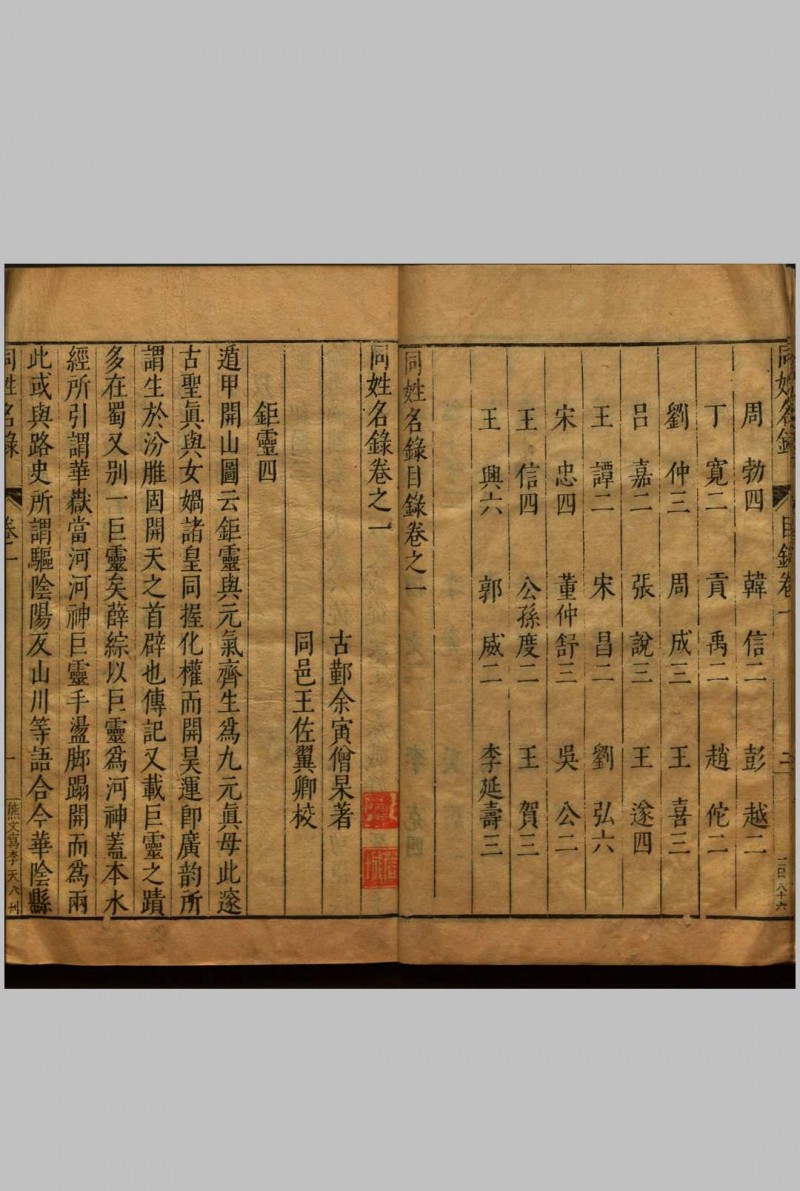 同姓名錄 目錄卷一
周勃四 韓信二 彭越二
丁寬二 貢禹二 趙佗二
劉仲三 周成三 王喜三
呂嘉二 張說三 王遂四
王譚二 宋昌二 劉弘六
宋忠四 董仲舒三 吳公二
王信四 公孫度二 王賀三
王興六 郭威二 李延壽三
同姓名錄目錄卷之一
同姓名錄卷之一
古鄞余寅僧杲著
同邑王佐翼卿校
鉅靈四
遁甲開山圖云鉅靈與元氣齊生爲九元眞母此邃
古聖眞與女媧諸皇同握化權而開昊運卽廣韵所
謂生於汾脽固開天之首辟也傳記又載巨靈之蹟
多在蜀又别一巨靈矣薛綜以巨靈爲河神葢本水
經所引謂華嶽當河河神巨靈手盪脚蹋開而爲兩
此或與路史所謂驅陰陽反山川等語合今華陰縣
同姓名錄 卷一 一